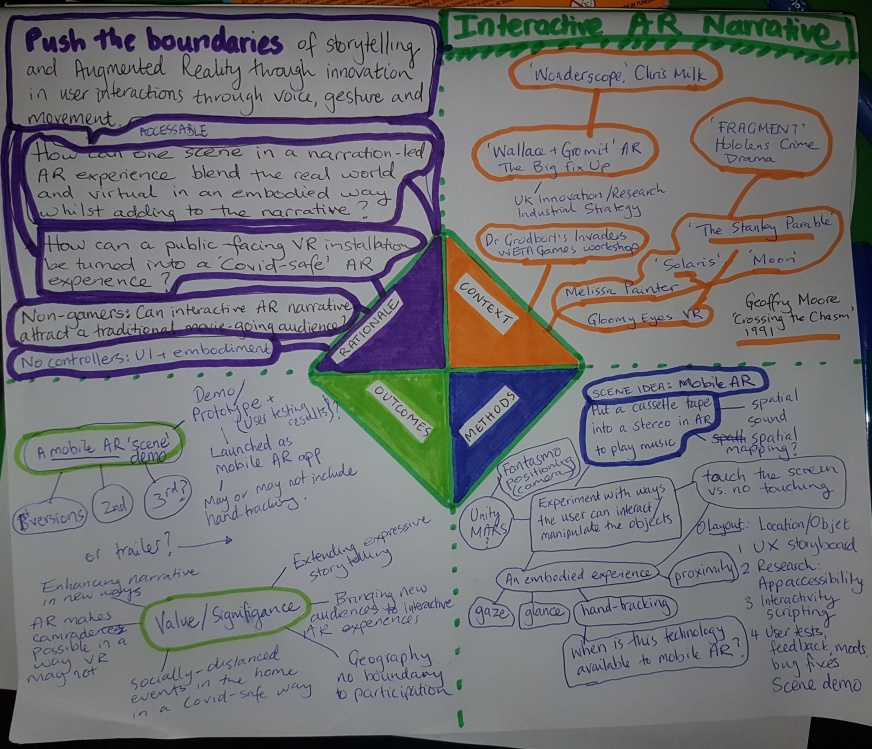 Interactive AR Narrative
Push the boundaries of storytelling
and Augmented Reality through innovation
in user interactions through voice, gesture and
movement.
ACCESSABLE
How can one scene in a narration-led
AR experience blend the real world
and virtual in an embodied way
whilst adding to the narrative?
How can a public-facing VR installation
be turned into a 'Covid-safe' AR
experience?
Non-gamers: Can interactive AR narrative
attract a traditional movie-going audience?
No controllers: UI + embodiment
RATIONALE
'Wonderscope' Chris Milk
'Wallace + Gromit' AR
The Big Fix Up
UK Innovation/Research
Industrial Strategy
'FRAGMENT'
Hololens Crime
Drama
Dr Grodbort's Invaders
WETA Games workshop
'The Stanley Parable'
'Solaris'
'Moon'
Melissa Painter
Gloomy Eyes VR
Geoffry Moore
'Crossing the Chasm'
1991
CONTEXT
OUTCOMES
A mobile AR 'scene'
demo
1st versions
2nd
3rd?
Demo/
Prototype +
(User testing
results)?
Launched as
mobile AR app
May or may not include
hand-tracking.
or trailer?
Value/Significance
Enhancing narrative
in new ways
AR makes
camraderie
possible in a
way VR
may not.
Socially-distanced
events in the home
in a Covid-safe way
Extending expressive
storytelling
Bringing new
audiences to interactive
AR experiences
Geography
no boundary
to participation
METHODS
SCENE IDEA: Mobile AR
Put a cassette tape
into a stereo in AR
to play music
spatial
sound
spatial
mapping?
Fantasmo
positioning
(camera)
Unity
MARS?
Experiment with ways
the user can interact/
manipulate the objects
touch the screen
vs. no touching
An embodied experience
proximity
gaze
glance
hand-tracking
when is this technology
available to mobile AR?
0 Layout: Location/Objet
1 UX storyboard
2 Research:
App accessibility
3 interactivity
scripting
4 User tests,
feedback, mods,
bug fixes
Scene demo